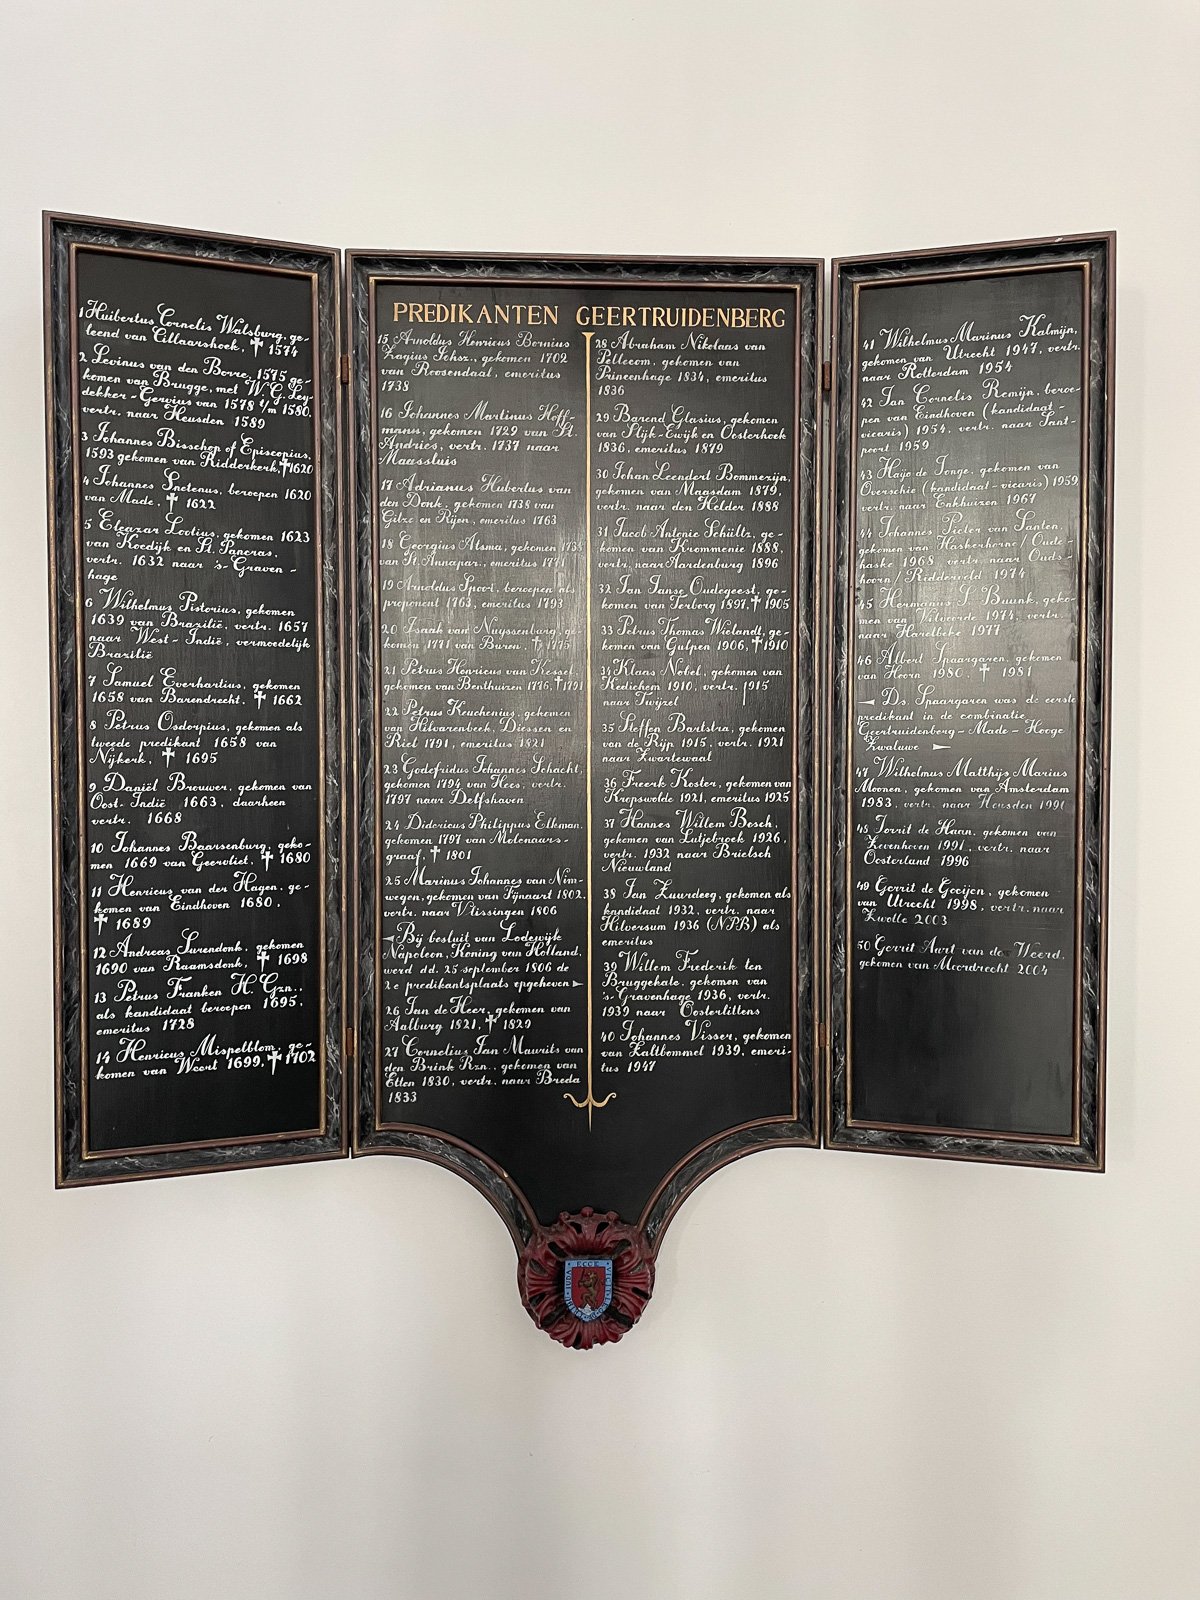 1 Huibertus Cornelis Walsburg, ge-
leend van Cillaarshoek, † 1574
2 Levinus van den Borre, 1575 ge-
komen van Brugge, met W. G. Ley-
dekker - Gervius van 1578 t/m 1580.
vertr. naar Heusden 1589
3 Johannes Bisschop of Episcopius,
1593 gekomen van Ridderkerk, † 1620
4 Johannes Snetenus, beroepen 1620
van Made, † 1622
5 Eleazar Lootius, gekomen 1623
van Koedijk en St. Pancras,
vertr. 1632 naar 's-Graven-
hage
6 Wilhelmus Pistorius, gekomen
1639 van Brazilië, vertr. 1657
naar West-Indië, vermoedelijk
Brazilië
7 Samuel Everhartius, gekomen
1658 van Barendrecht, † 1662
8 Petrus Osdorpius, gekomen als
tweede predikant 1658 van
Nijkerk, † 1695
9 Daniël Brouwer, gekomen van
Oost-Indië 1663, daarheen
vertr. 1668
10 Johannes Baarsenburg, geko-
men 1669 van Geervliet, † 1680
11 Henricus van der Hagen, ge-
komen van Eindhoven 1680,
† 1689
12 Andreas Surendonk, gekomen
1690 van Raamsdonk, † 1698
13 Petrus Franken H Gzn.,
als kandidaat beroepen 1695,
emeritus 1728
14 Henricus Mispelblom, ge-
komen van Weert 1699, † 1702
PREDIKANTEN GEERTRUIDENBERG
15 Arnoldus Henricus Bornius
Zragius Jehsz., gekomen 1702
van Roosendaal, emeritus
1738
16 Johannes Martinus Hoff-
manus, gekomen 1729 van St.
Andries, vertr. 1737 naar
Maassluis
17 Adrianus Hubertus van
den Donk, gekomen 1738 van
Gilze en Rijen, emeritus 1763
18 Georgius Atsma, gekomen 1738
van St. Annapar., emeritus 1771
19 Arnoldus Spoor, beroepen als
proponent 1763, emeritus 1793
20 Isaak van Nuyssenburg, ge-
komen 1771 van Buren, † 1775
21 Petrus Henricus van Kessel,
gekomen van Benthuizen 1776, † 1791
22 Petrus Keuchenius, gekomen
van Hilvarenbeek, Diessen en
Riel 1791, emeritus 1821
23 Godefridus Johannes Schacht,
gekomen 1794 van Hees, vertr.
1797 naar Delfshaven
24 Didericus Philippus Elkman,
gekomen 1797 van Molenaars-
graaf, † 1801
25 Marinus Johannes van Nim-
wegen, gekomen van Fijnaart 1802,
vertr. naar Vlissingen 1806
Bij besluit van Lodewijk
Napoleon, Koning van Holland,
werd dd. 25 september 1806 de
2e predikantsplaats opgeheven
26 Jan de Heer, gekomen van
Aalburg 1821, † 1829
27 Cornelius Jan Maurits van
den Brink Rzn., gekomen van
Etten 1830, vertr. naar Breda
1833
28 Abraham Nikolaas van
Pellecom, gekomen van
Princenhage 1834, emeritus
1836
29 Barend Glasius, gekomen
van Slijk-Ewijk en Oosterhoek
1836, emeritus 1879
30 Johan Leendert Bommezijn,
gekomen van Maasdam 1879,
vertr. naar den Helder 1888
31 Jacob Antonie Schültz, ge-
komen van Krommenie 1888,
vertr. naar Aardenburg 1896
32 Jan Janse Oudegeest, ge-
komen van Terborg 1897, † 1905
33 Petrus Thomas Wielandt, ge-
komen van Gulpen 1906, † 1910
34 Klaas Nobel, gekomen van
Kedichem 1910, vertr. 1915
naar Twijzel
35 Steffen Bartstra, gekomen
van de Rijp 1915, vertr. 1921
naar Zwartewaal
36 Freerk Koster, gekomen van
Kropswolde 1921, emeritus 1925
37 Hannes Willem Besch,
gekomen van Lutjebroek 1926,
vertr. 1932 naar Brielsch
Nieuwland
38 Jan Zuurdeeg, gekomen als
kandidaat 1932, vertr. naar
Hilversum 1936 (NPB) als
emeritus
39 Willem Frederik ten
Bruggekate, gekomen van
's-Gravenhage 1936, vertr.
1939 naar Oosterlittens
40 Johannes Visser, gekomen
van Zaltbommel 1939, emeri-
tus 1947
41 Wilhelmus Marinus Kalmijn,
gekomen van Utrecht 1947, vertr.
naar Rotterdam 1954
42 Jan Cornelis Remijn, beroe-
pen van Eindhoven (kandidaat-
vicaris) 1954, vertr. naar Sant-
poort 1959
43 Hajo de Jonge, gekomen van
Overschie (kandidaat-vicaris) 1959
vertr. naar Enkhuizen 1967
44 Johannes Pieter van Santen,
gekomen van Haskerhorne/Oude-
haske 1968 vertr. naar Ouds-
hoorn/Ridderveld 1974
45 Hermanus S Buunk, geko-
men van Vilvoorde 1974, vertr.
naar Harelbeke 1977
46 Albert Spaargaren, gekomen
van Hoorn 1980, † 1981
Ds. Spaargaren was de eerste
predikant in de combinatie
Geertruidenberg-Made-Hooge
Zwaluwe
47 Wilhelmus Matthijs Marius
Moonen, gekomen van Amsterdam
1983, vertr. naar Heusden 1990
48 Jorrit de Haan, gekomen van
Zevenhoven 1991, vertr. naar
Oosterland 1996
49 Gerrit de Gooijen, gekomen
van Utrecht 1998, vertr. naar
Zwolle 2003
50 Gerrit Aart van de Weerd,
gekomen van Moordrecht 2004
ECCE